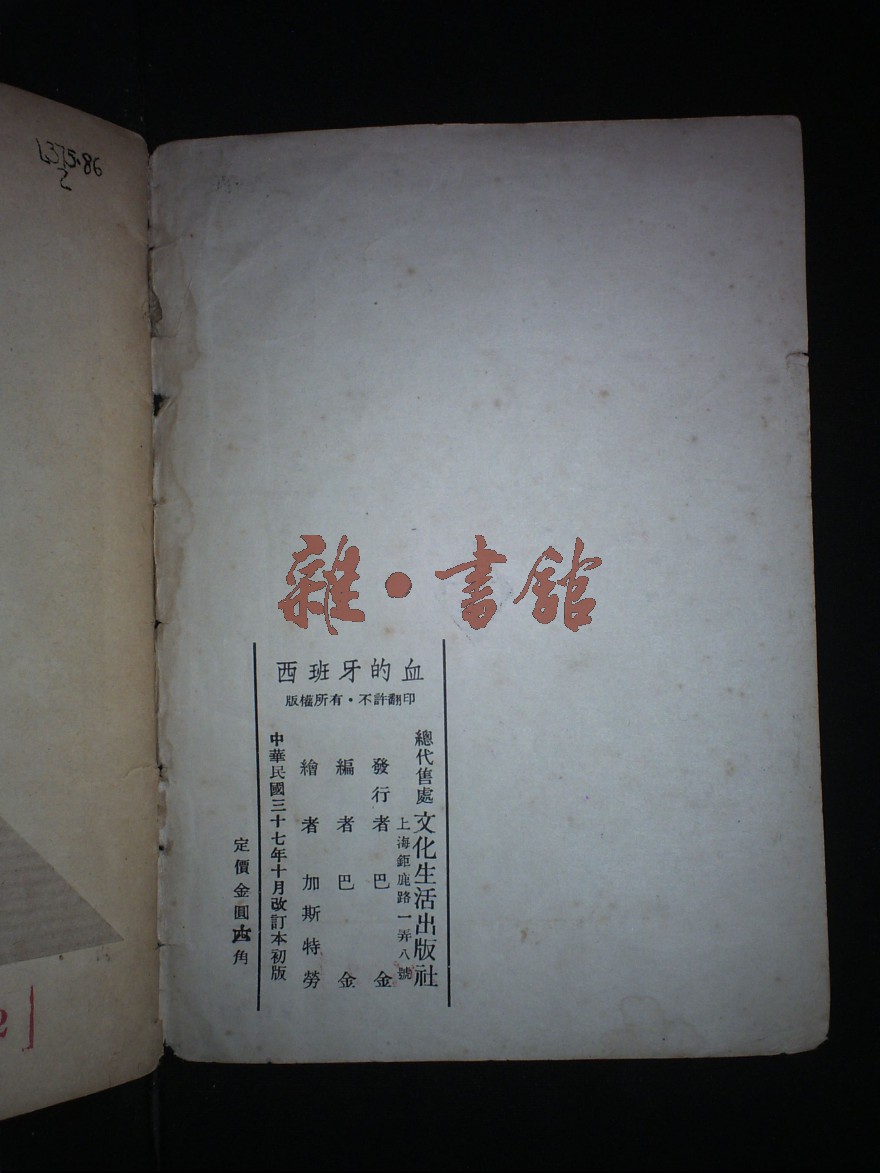 L375·86
2
雜·書館
西班牙的血
版權所有·不許翻印
總代售處 文化生活出版社
上海鉅鹿路一弄八號
發行者 巴金
編者 巴金
繪者 加斯特勞
中華民國三十七年十月改訂本初版
定價金圓角
2